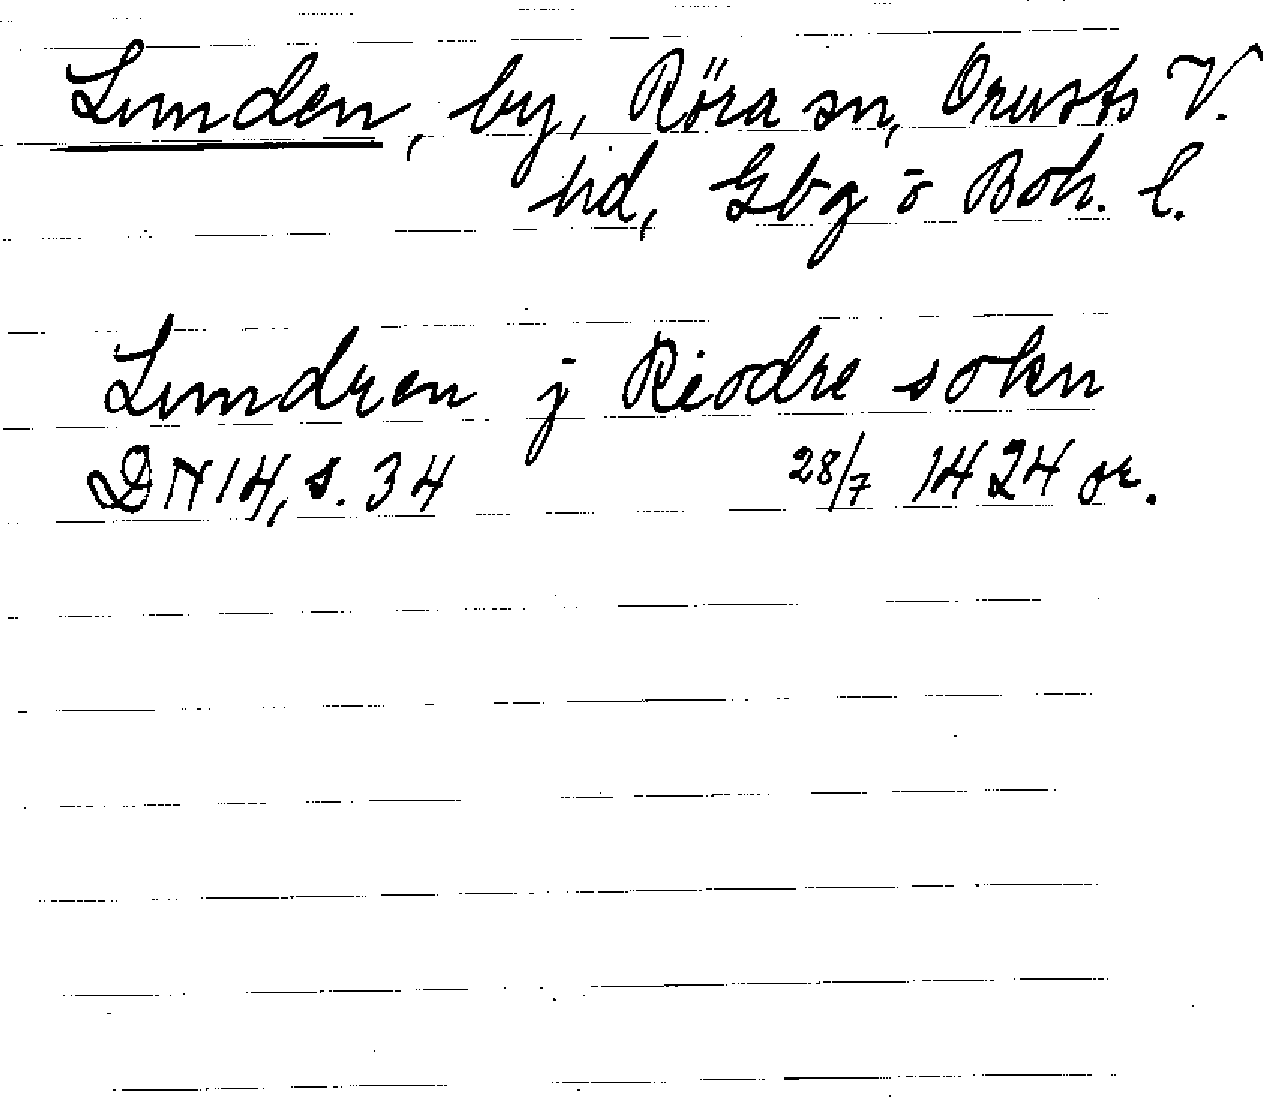 Lunden, by, Röra sn, Orusts V.
hd, Gbg o Boh. l.
Lundren j Riodre sokn
DN 14, s. 34 28/7 1424 or.